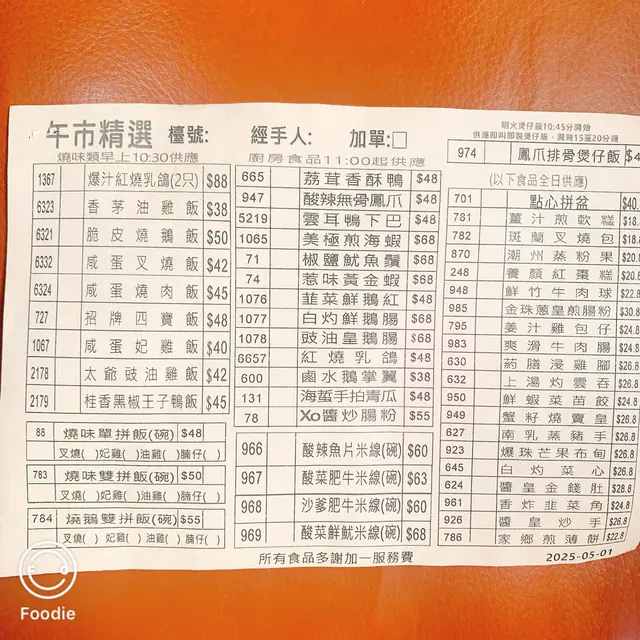 午市精選 檯號: 經手人: 加單:□
燒味類早上10:30供應
1367 爆汁紅燒乳鴿(2只) $88
6323 香茅油雞飯 $38
6321 脆皮燒鵝飯 $50
6332 咸蛋叉燒飯 $42
6324 咸蛋燒肉飯 $45
727 招牌四寶飯 $48
1067 咸蛋妃雞飯 $40
2178 太爺豉油雞飯 $42
2179 桂香黑椒王子鴨飯 $45
88 燒味單拼飯(碗) $48
叉燒( ) 妃雞( ) 油雞( ) 腩仔( )
783 燒味雙拼飯(碗) $50
叉燒( ) 妃雞( ) 油雞( ) 腩仔( )
784 燒鵝雙拼飯(碗) $55
叉燒( ) 妃雞( ) 油雞( ) 腩仔( )
廚房食品11:00起供應
665 荔茸香酥鴨 $48
947 酸辣無骨鳳爪 $48
5219 雲耳鴨下巴 $48
1065 美極煎海蝦 $68
71 椒鹽魷魚鬚 $68
74 惹味黃金蝦 $68
1076 韮菜鮮鵝紅 $48
1077 白灼鮮鵝腸 $68
1078 豉油皇鵝腸 $68
6657 紅燒乳鴿 $48
600 鹵水鵝掌翼 $38
131 海蜇手拍青瓜 $48
78 Xo醬炒腸粉 $55
966 酸辣魚片米線(碗) $60
967 酸菜肥牛米線(碗) $63
968 沙爹肥牛米線(碗) $60
969 酸菜鮮魷米線(碗) $68
明火煲仔飯10:45分開始
供應即叫即製煲仔飯，需時15至20分鐘
974 鳳爪排骨煲仔飯 $4
(以下食品全日供應)
701 點心拼盆 $40.
781 薑汁煎軟糕 $18.
782 斑蘭叉燒包 $18.
870 潮州蒸粉果 $20.
248 養顏紅棗糕 $20.
948 鮮竹牛肉球 $22.8
985 金珠蔥皇煎腸粉 $30.8
795 姜汁雞包仔 $24.8
983 爽滑牛肉腸 $24.8
630 葯膳浸雞腳 $26.8
632 上湯灼雲吞 $26.8
950 鮮蝦菜苗餃 $24.8
949 蟹籽燒賣皇 $26.8
627 南乳蒸豬手 $26.8
923 爆珠芒果布甸 $26.8
645 白灼菜心 $26.8
624 醬皇金錢肚 $28.8
961 香炸韭菜角 $24.8
926 醬皇炒手 $26.8
786 家鄉煎薄餅 $22.8
所有食品多謝加一服務費
2025-05-01
Foodie